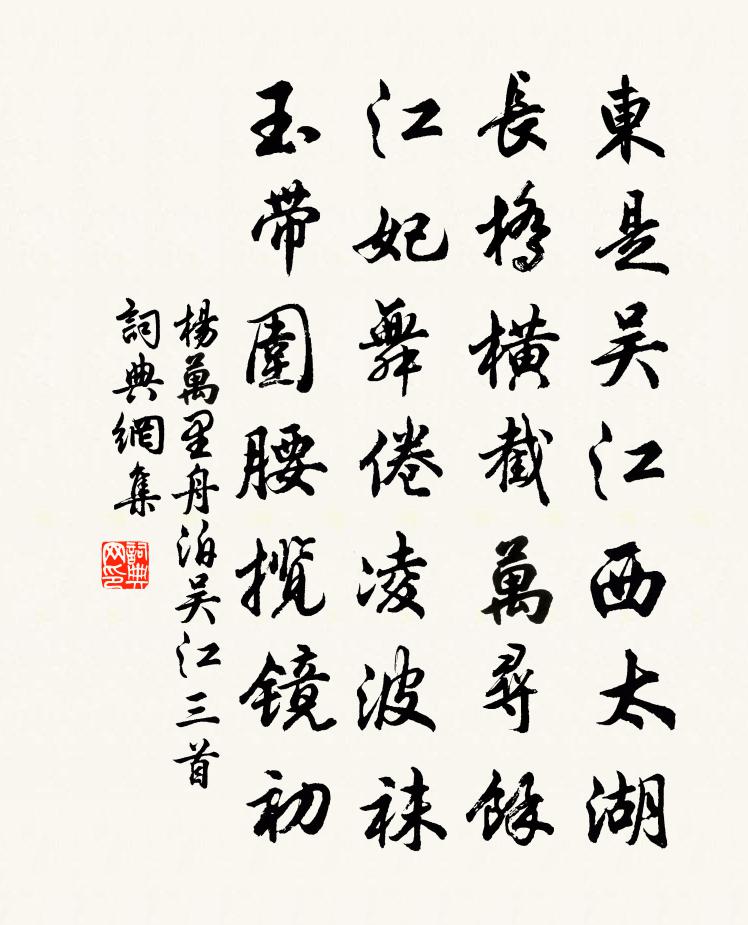 東是吴江西太湖
長橋橫截萬尋餘
江妃舞倦凌波袜
玉帶圍腰揽镜初
楊萬里舟泊吴江三首
詞典網集
詞典网印